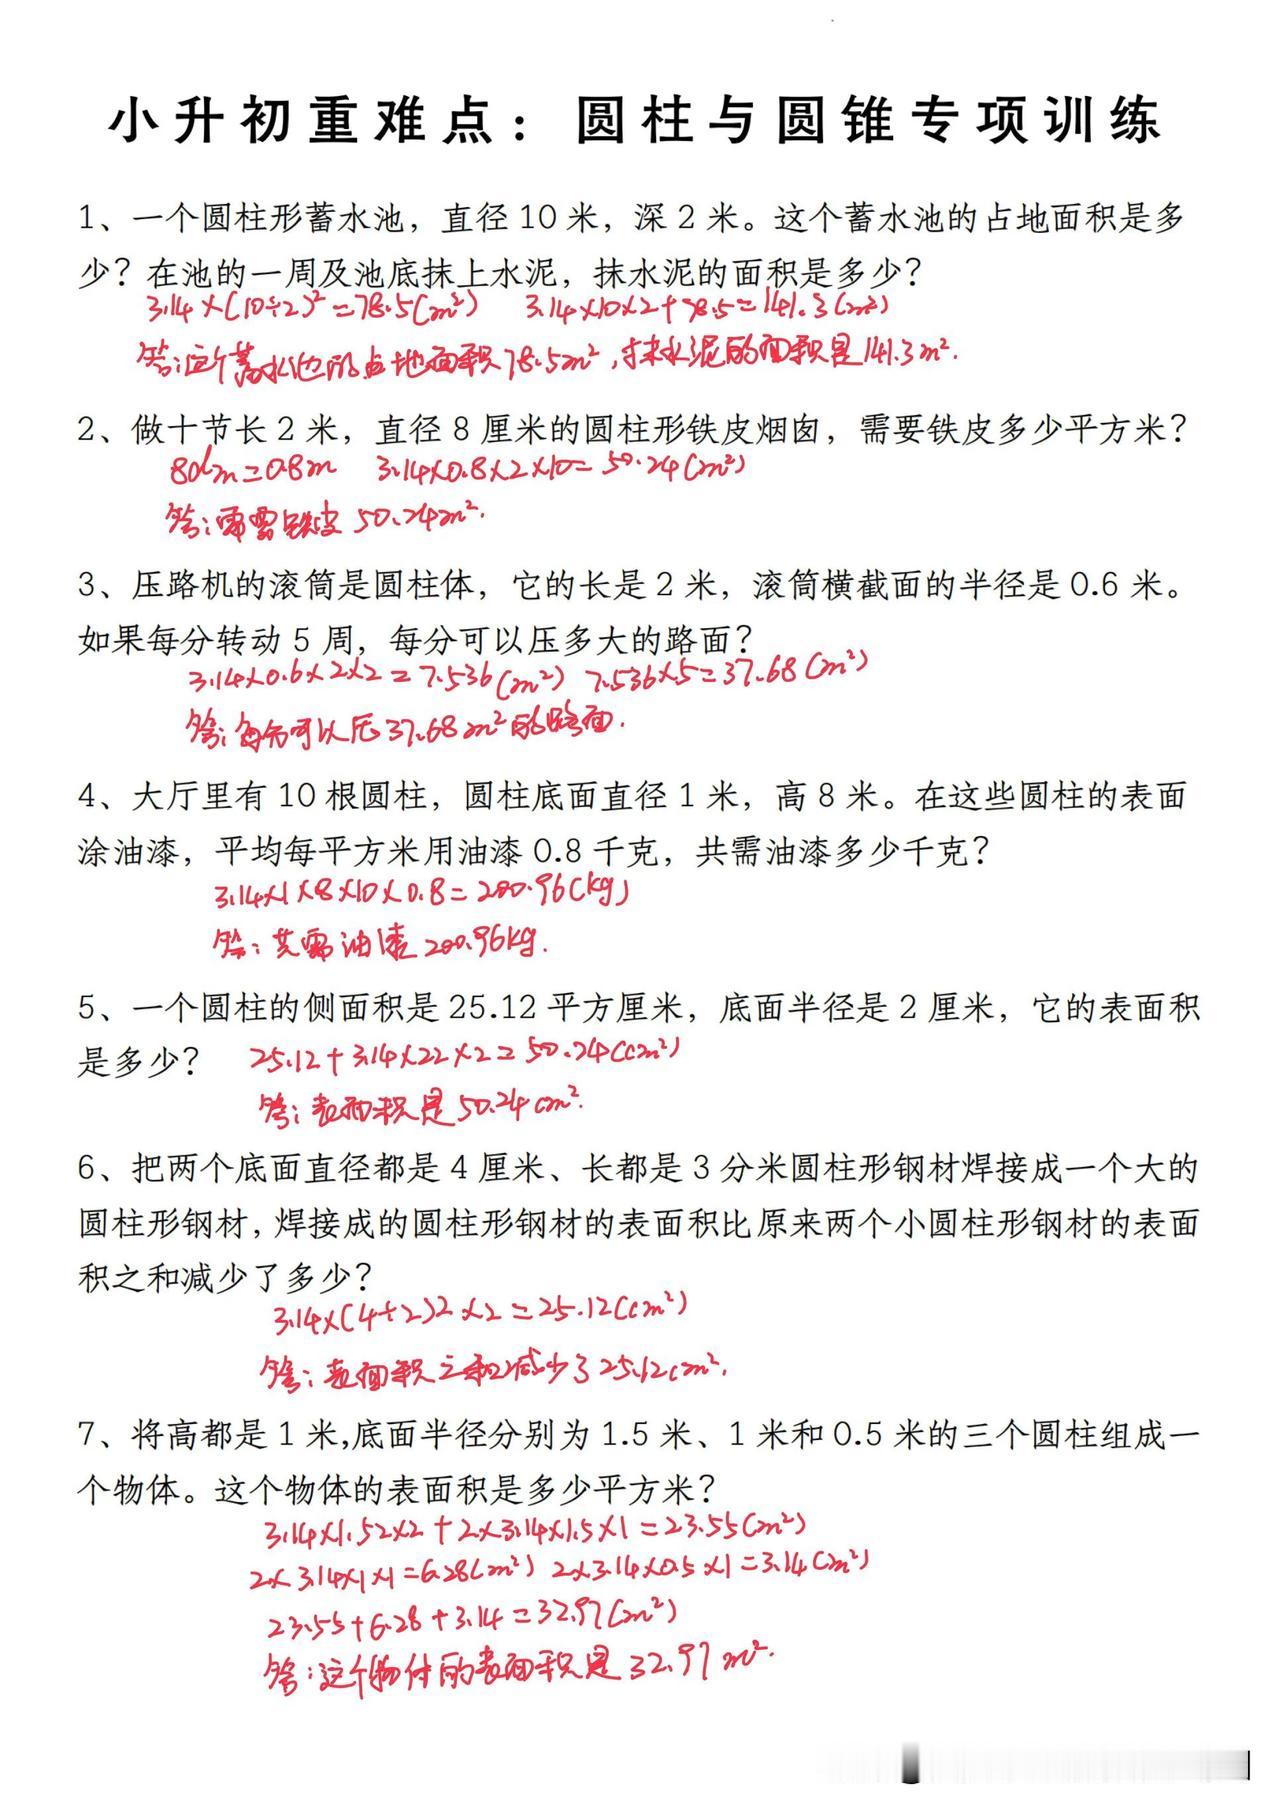 小升初重难点：圆柱与圆锥专项训练
1、一个圆柱形蓄水池，直径 10 米，深 2 米。这个蓄水池的占地面积是多
少？在池的一周及池底抹上水泥，抹水泥的面积是多少？
3.14×(10÷2)²=78.5(m²) 3.14×10×2+78.5=141.3(m²)
答:这个蓄水池的占地面积78.5m²,抹水泥的面积是141.3m².
2、做十节长 2 米，直径 8 厘米的圆柱形铁皮烟囱，需要铁皮多少平方米？
8dm=0.8m 3.14×0.8×2×10=50.24(m²)
答:需要铁皮 50.24m².
3、压路机的滚筒是圆柱体，它的长是 2 米，滚筒横截面的半径是 0.6 米。
如果每分转动 5 周，每分可以压多大的路面？
3.14×0.6×2×2=7.536(m²) 7.536×5=37.68(m²)
答:每分可以压37.68m²的路面.
4、大厅里有 10 根圆柱，圆柱底面直径 1 米，高 8 米。在这些圆柱的表面
涂油漆，平均每平方米用油漆 0.8 千克，共需油漆多少千克？
3.14×1×8×10×0.8=200.96(kg)
答:共需油漆200.96kg.
5、一个圆柱的侧面积是 25.12 平方厘米，底面半径是 2 厘米，它的表面积
是多少？ 25.12+3.14×22×2=50.24(cm²)
答:表面积是50.24cm².
6、把两个底面直径都是 4 厘米、长都是 3 分米圆柱形钢材焊接成一个大的
圆柱形钢材，焊接成的圆柱形钢材的表面积比原来两个小圆柱形钢材的表面
积之和减少了多少？
3.14×(4÷2)2×2=25.12(cm²)
答:表面积之和减少了25.12cm².
7、将高都是 1 米,底面半径分别为 1.5 米、1 米和 0.5 米的三个圆柱组成一
个物体。这个物体的表面积是多少平方米？
3.14×1.52×2+2×3.14×1.5×1=23.55(m²)
2×3.14×1×1=6.28(m²) 2×3.14×0.5×1=3.14(m²)
23.55+6.28+3.14=32.97(m²)
答:这个物体的表面积是32.97m².